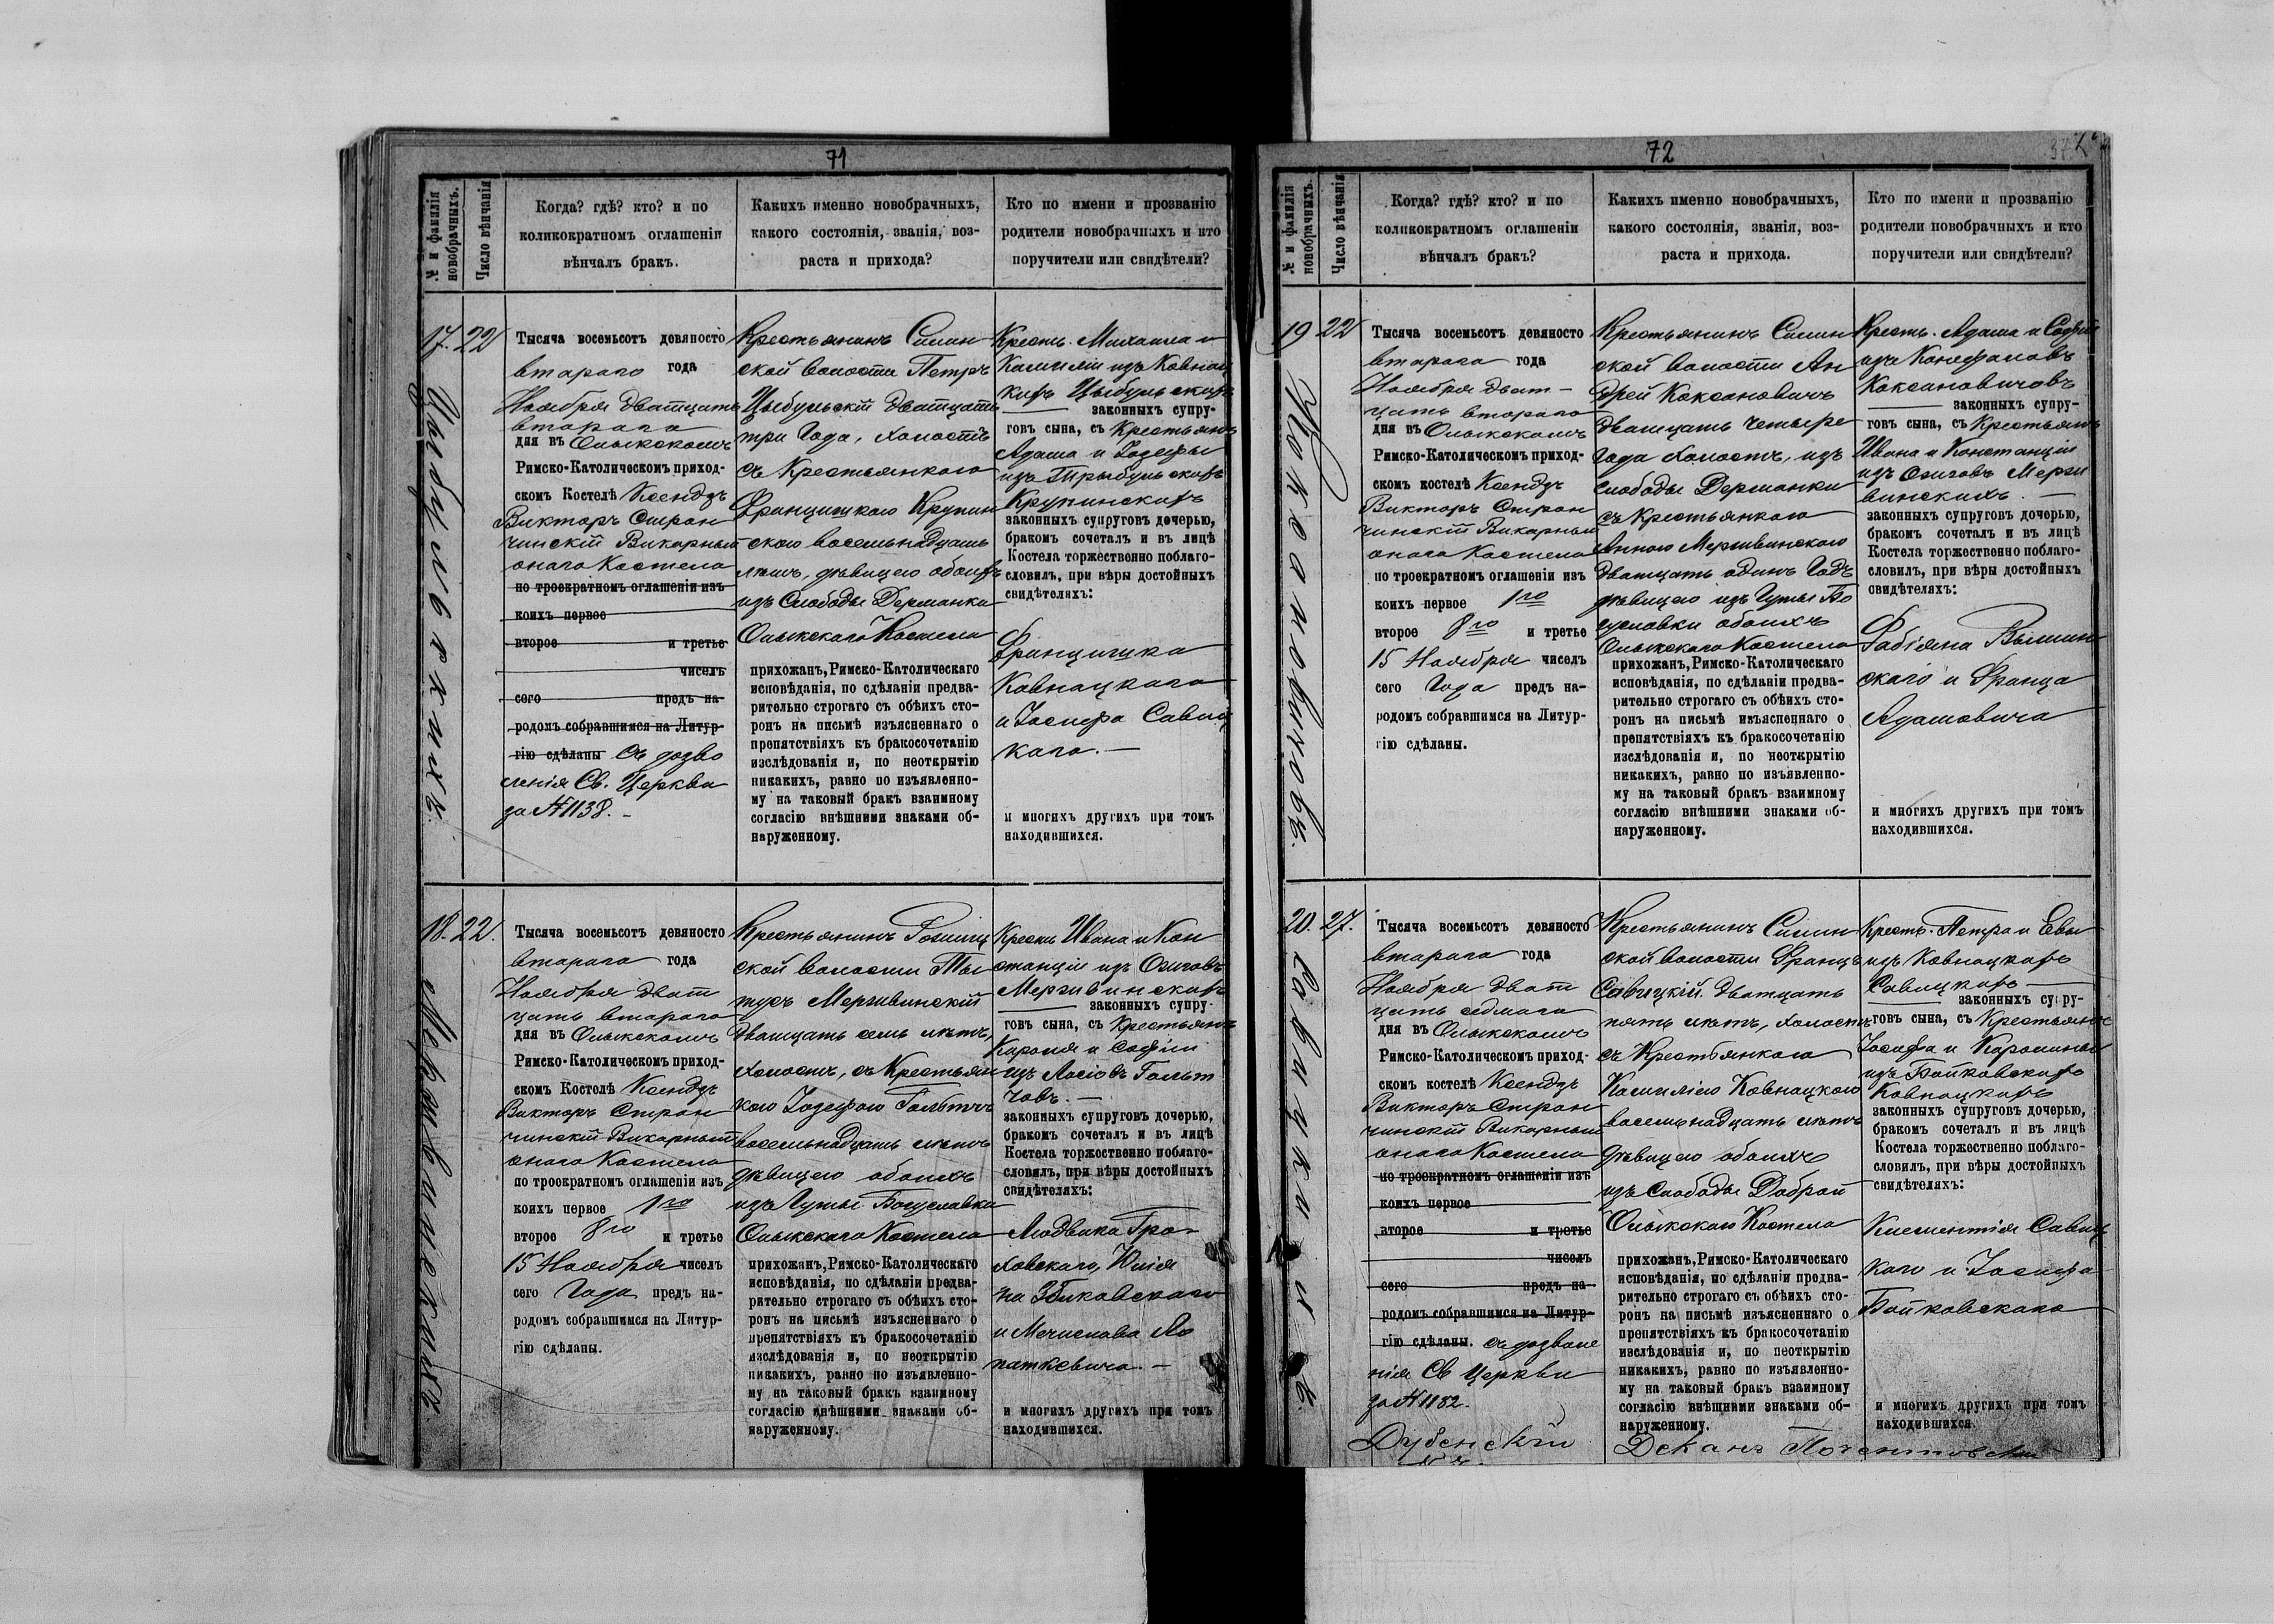 71
№ и фамилія
новобрачныхъ.
Число вѣнчанія
Когда? гдѣ? кто? и по
коликократномъ оглашеніи
вѣнчалъ бракъ.
Какихъ именно новобрачныхъ,
какого состоянія, званія, воз-
раста и прихода?
Кто по имени и прозванію
родители новобрачныхъ и кто
поручители или свидѣтели?
17.
22
Тысяча восемьсотъ девяносто
втораго года
Ноября двадцать
втораго
дня въ Олыкскомъ
Римско-Католическомъ приход-
скомъ Костелѣ Ксендзъ
Викторъ Стран
чинскій Викарный
онаго Костела
по троекратномъ оглашеніи изъ
коихъ первое
второе и третье
чиселъ
сего предъ на-
родомъ собравшимся на Литур-
гію сдѣланы Съ дозво
ленія Св. Церкви
за № 1138.
Крестьянинъ Силин
ской волости Петръ
Цыбульскій двадцать
три Года, холостъ
съ Крестьянкою
Францишкою Крупин
скою восемьнадцать
лѣтъ, дѣвицею обоихъ
изъ Слободы Дерманки
Олыкскаго Костела
прихожанъ, Римско-Католическаго
исповѣданія, по сдѣланіи предва-
рительно строгаго съ обѣихъ сто-
ронъ на письмѣ изъясненнаго о
препятствіяхъ къ бракосочетанію
изслѣдованія и, по неоткрытію
никакихъ, равно по изъявленно-
му на таковый бракъ взаимному
согласію внѣшними знаками об-
наруженному.
Крестъ. Михаила и
Камиліи изъ Ковнац
кихъ Цыбульскихъ
законныхъ супру-
говъ сына, съ Крестьянъ
Адама и Іозефы
изъ Трыбульскихъ
Крупинскихъ
законныхъ супруговъ дочерью,
бракомъ сочеталъ и въ лицѣ
Костела торжественно поблаго-
словилъ, при вѣры достойныхъ
свидѣтеляхъ:
Францишка
Ковнацкаго
и Іосифа Савиц
каго.
и многихъ другихъ при томъ
находившихся.
18.
22.
Тысяча восемьсотъ девяносто
втораго года
Ноября двад
цать втораго
дня въ Олыкскомъ
Римско-Католическомъ приход-
скомъ Костелѣ Ксендзъ
Викторъ Стран
чинскій Викарный
онаго Костела
по троекратномъ оглашеніи изъ
коихъ первое 1го
второе 8го и третье
15 Ноября чиселъ
сего Года предъ на-
родомъ собравшимся на Литур-
гію сдѣланы.
Крестьянинъ
ской волости
Мерживинскій
двадцать семь лѣтъ,
холостъ, съ Крестьян
кою Іозефою
восемьнадцать лѣтъ
дѣвицею обоихъ
изъ Гуты Богуславки
Олыкскаго Костела
прихожанъ, Римско-Католическаго
исповѣданія, по сдѣланіи предва-
рительно строгаго съ обѣихъ сто-
ронъ на письмѣ изъясненнаго о
препятствіяхъ къ бракосочетанію
изслѣдованія и, по неоткрытію
никакихъ, равно по изъявленно-
му на таковый бракъ взаимному
согласію внѣшними знаками об-
наруженному.
Ивана и Кон
станціи изъ
Мерживинскихъ
законныхъ супру-
говъ сына, съ Крестьянъ
Кароля и Софіи
изъ
законныхъ супруговъ дочерью,
бракомъ сочеталъ и въ лицѣ
Костела торжественно поблаго-
словилъ, при вѣры достойныхъ
свидѣтеляхъ:
Людвика Гро-
ховскаго, Юлія
на
и Мечислава Ло
паткевича.
и многихъ другихъ при томъ
находившихся.
72
№ и фамилія
новобрачныхъ.
Число вѣнчанія
Когда? гдѣ? кто? и по
коликократномъ оглашеніи
вѣнчалъ бракъ?
Какихъ именно новобрачныхъ,
какого состоянія, званія, воз-
раста и прихода.
Кто по имени и прозванію
родители новобрачныхъ и кто
поручители или свидѣтели?
19
22
Коксановичовъ.
Тысяча восемьсотъ девяносто
втораго года
Ноября двад-
цать втораго
дня въ Олыкскомъ
Римско-Католическомъ приход-
скомъ костелѣ Ксендзъ
Викторъ Стран
чинскій Викарный
онаго Костела
по троекратномъ оглашеніи изъ
коихъ первое 1го
второе 8го и третье
15 Ноября чиселъ
сего Года предъ на-
родомъ собравшимся на Литур-
гію сдѣланы.
Крестьянинъ Силин
ской волости Ан
дрей Коксановичъ
двадцать четыре
Года холостъ, изъ
слободы Дерманки
съ Крестьянкою
Анною Мерживинскою
двадцать одинъ Годъ
дѣвицею изъ Гуты Бо
гуславки обоихъ
Олыкскаго Костела
прихожанъ, Римско-Католическаго
исповѣданія, по сдѣланіи предва-
рительно строгаго съ обѣихъ сто-
ронъ на письмѣ изъясненнаго о
препятствіяхъ къ бракосочетанію
изслѣдованія и, по неоткрытію
никакихъ, равно по изъявленно-
му на таковый бракъ взаимному
согласію внѣшними знаками об-
наруженному.
Крестъ. Адама и Софіи
изъ
Коксановичовъ
законныхъ супру-
говъ сына, съ Крестьянъ
Ивана и Констанціи
изъ Мержи
винскихъ.
законныхъ супруговъ дочерью,
бракомъ сочеталъ и въ лицѣ
Костела торжественно поблаго-
словилъ, при вѣры достойныхъ
свидѣтеляхъ:
Фабіяна
скаго и Франца
Адамовича
и многихъ другихъ при томъ
находившихся.
20.
27.
Тысяча восемьсотъ девяносто
втораго года
Ноября двад
цать седмаго
дня въ Олыкскомъ
Римско-Католическомъ приход-
скомъ костелѣ Ксендзъ
Викторъ Стран
чинскій Викарный
онаго Костела
по троекратномъ оглашеніи изъ
коихъ первое
второе и третье
чиселъ
сего предъ на-
родомъ собравшимся на Литур-
гію сдѣланы. съ дозволе
нія Св Церкви
за № 1182.
Дубенскій
Крестьянинъ Силин
ской волости Францъ
Савицкій. двадцать
пять лѣтъ, холостъ
съ Крестьянкою
Камиліею Ковнацкою
восемьнадцать лѣтъ
дѣвицею обоихъ
изъ Слободы Доброй
Олыкскаго Костела
прихожанъ, Римско-Католическаго
исповѣданія, по сдѣланіи предва-
рительно строгаго съ обѣихъ сто-
ронъ на письмѣ изъясненнаго о
препятствіяхъ къ бракосочетанію
изслѣдованія и, по неоткрытію
никакихъ, равно по изъявленно-
му на таковый бракъ взаимному
согласію внѣшними знаками об-
наруженному.
Деканъ
Крестъ. Петра и Евы
изъ Ковнацкихъ
Савицкихъ
законныхъ супру-
говъ сына, съ Крестьянъ
Іосифа и Каролины
изъ Бойковскихъ
Ковнацкихъ
законныхъ супруговъ дочерью,
бракомъ сочеталъ и въ лицѣ
Костела торжественно поблаго-
словилъ, при вѣры достойныхъ
свидѣтеляхъ:
Климентія Савиц
каго и Іосифа
Бойковскаго
и многихъ другихъ при томъ
находившихся.